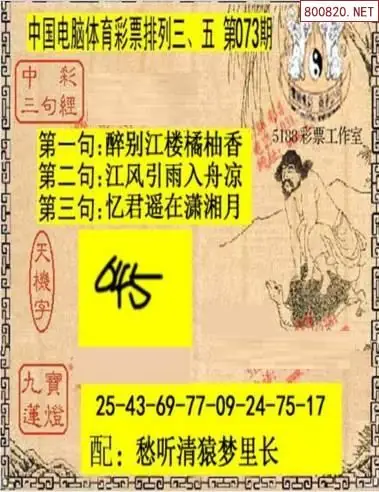 800820.NET
中国电脑体育彩票排列三、五 第073期
中彩
三句經
5188彩票工作室
第一句:醉别江楼橘柚香
第二句:江风引雨入舟凉
第三句:忆君遥在潇湘月
天機字
645
九寶
蓮燈
25-43-69-77-09-24-75-17
配：愁听清猿梦里长